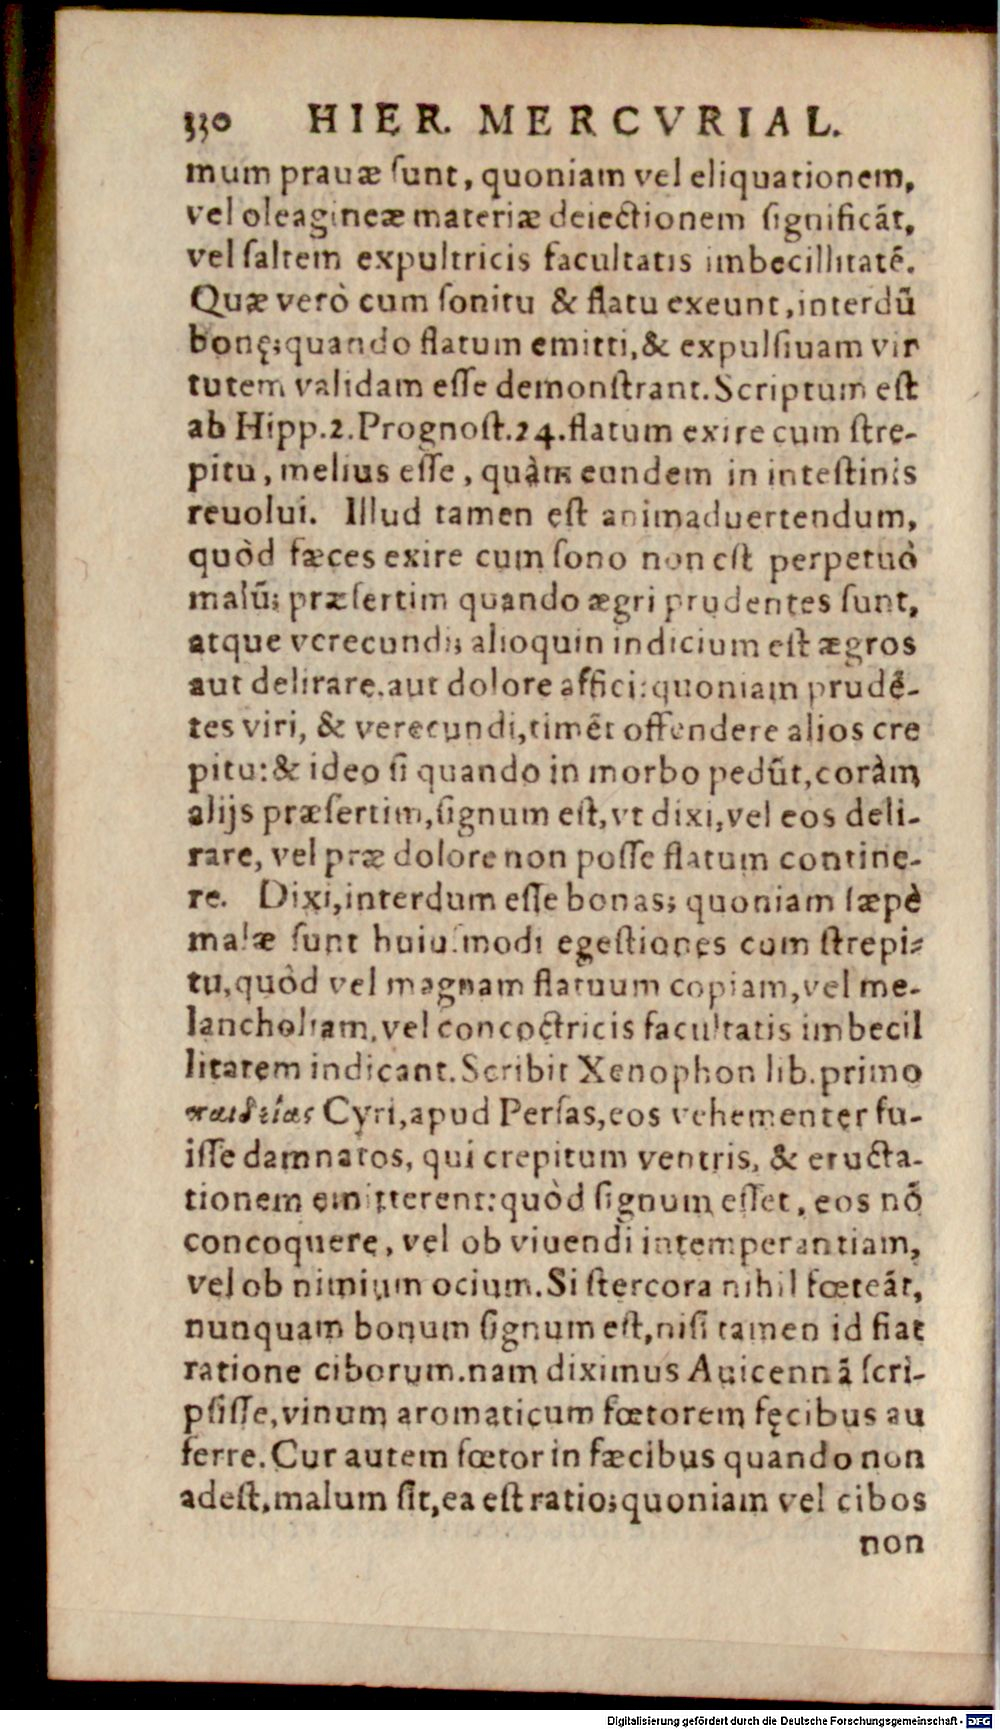 330 HIER. MERCVRIAL.
mum prauæ ſunt, quoniam vel eliquationem,
vel oleagineæ materiæ deiectionem significãt,
vel ſaltem expultricis facultatis imbecillitatẽ.
Quæ verò cum ſonitu & flatu exeunt, interdũ
bonę; quando flatum emitti, & expulſiuam vir
tutem validam eſſe demonſtrant. Scriptum eſt
ab Hipp. 2. Prognoſt. 24. flatum exire cum ſtre-
pitu, melius eſſe, quàm eundem in inteſtinis
reuolui. Illud tamen eſt animaduertendum,
quòd fæces exire cum ſono non eſt perpetuò
malũ; præſertim quando ægri prudentes ſunt,
atque verecundi; alioquin indicium eſt ægros
aut delirare, aut dolore affici: quoniam prudẽ-
tes viri, & verecundi, timẽt offendere alios cre
pitu: & ideo ſi quando in morbo pedũt, coràm
alijs præſertim, ſignum eſt, vt dixi, vel eos deli-
rare, vel præ dolore non poſſe flatum contine-
re. Dixi, interdum eſſe bonas; quoniam ſæpè
malæ ſunt huiuſmodi egeſtiones cum ſtrepi-
tu, quòd vel magnam flatuum copiam, vel me-
lancholiam, vel concoctricis facultatis imbecil
litatem indicant. Scribit Xenophon lib. primo
παιδείας Cyri, apud Perſas, eos vehementer fu-
iſſe damnatos, qui crepitum ventris, & eructa-
tionem emitterent: quòd ſignum eſſet, eos nõ
concoquere, vel ob viuendi intemperantiam,
vel ob nimium ocium. Si ſtercora nihil fœteãt,
nunquam bonum ſignum eſt, niſi tamen id fiat
ratione ciborum. nam diximus Auicennã ſcri-
pſiſſe, vinum aromaticum fœtorem fęcibus au
ferre. Cur autem fœtor in fæcibus quando non
adeſt, malum ſit, ea eſt ratio; quoniam vel cibos
non
Digitalisierung gefördert durch die Deutsche Forschungsgemeinschaft - DFG